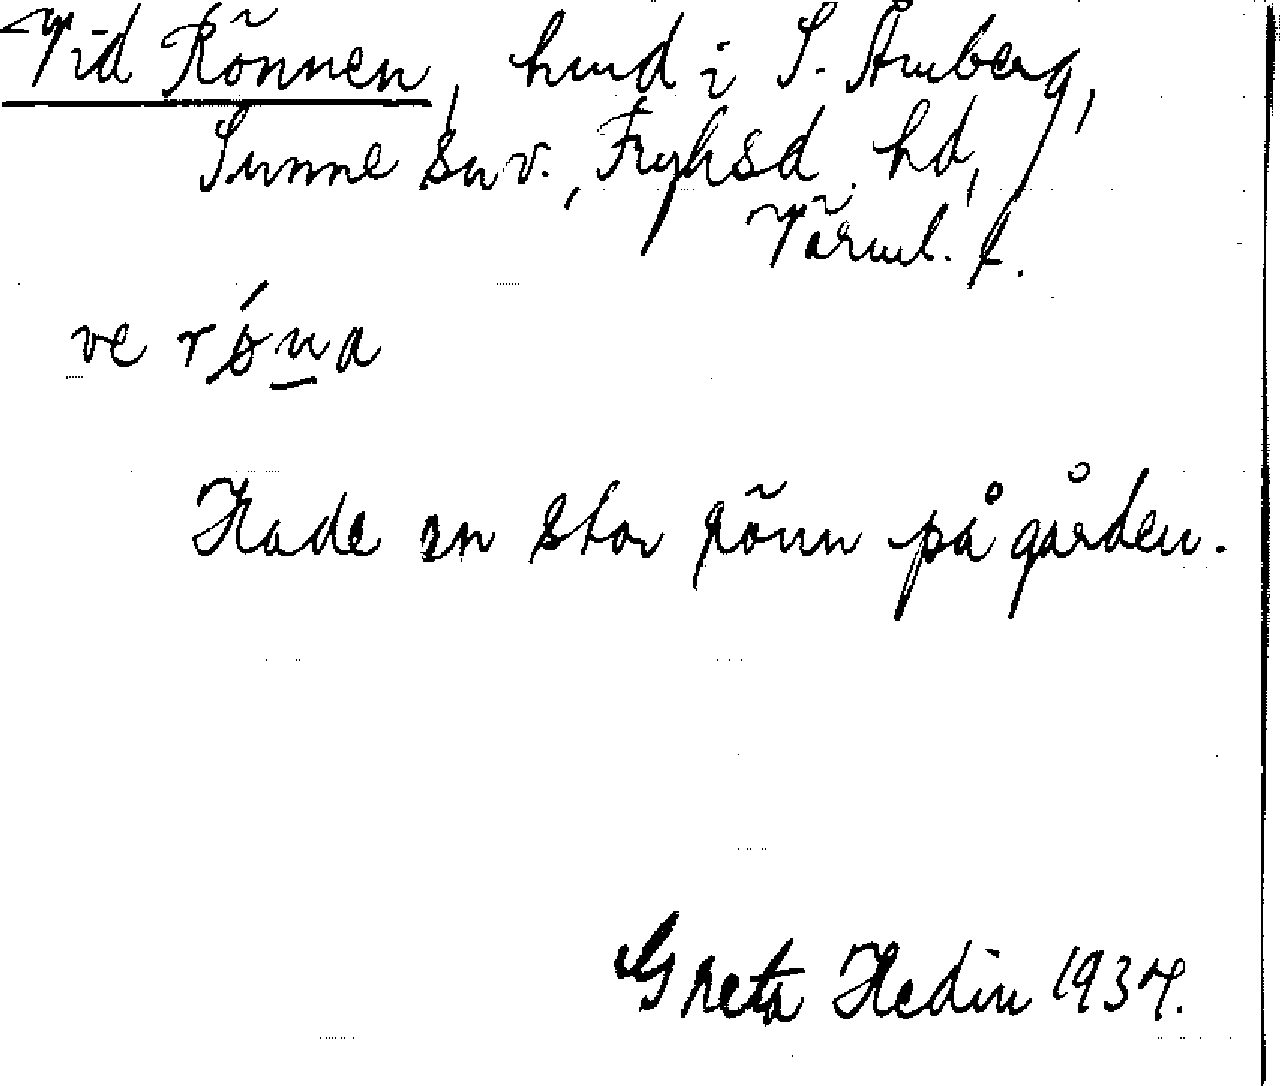 Vid Rönnen, hmd i S. Åmberg,
Sunne snv., Fryksd. hd,
Värml. l.
ve rǿna
Hade en stor rönn på gården.
Greta Hedin 1934.